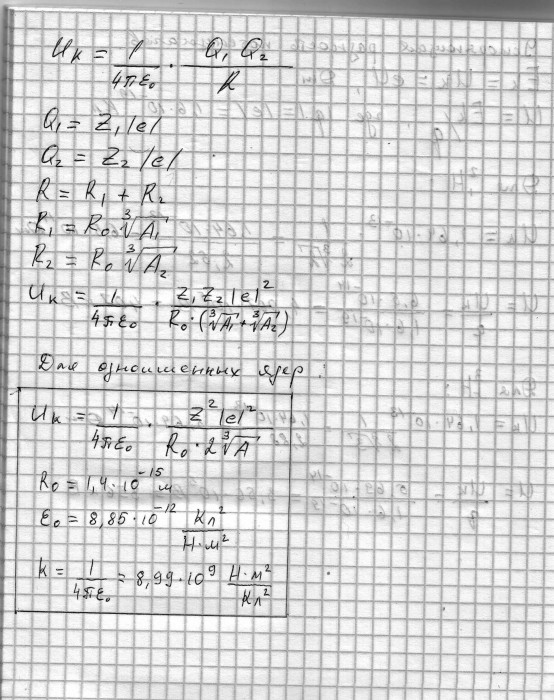 Uк = 1/4πε₀ · Q₁ Q₂/R
Q₁ = Z₁|e|
Q₂ = Z₂|e|
R = R₁ + R₂
R₁ = R₀ ∛A₁
R₂ = R₀ ∛A₂
Uк = 1/4πε₀ · Z₁Z₂|e|²/R₀·(∛A₁+∛A₂)
Для одноименных ядер:
Uк = 1/4πε₀ · Z²|e|²/R₀·2∛A
R₀ = 1,4·10⁻¹⁵ м
ε₀ = 8,85·10⁻¹² Кл²/Н·м²
k = 1/4πε₀ = 8,99·10⁹ Н·м²/Кл²